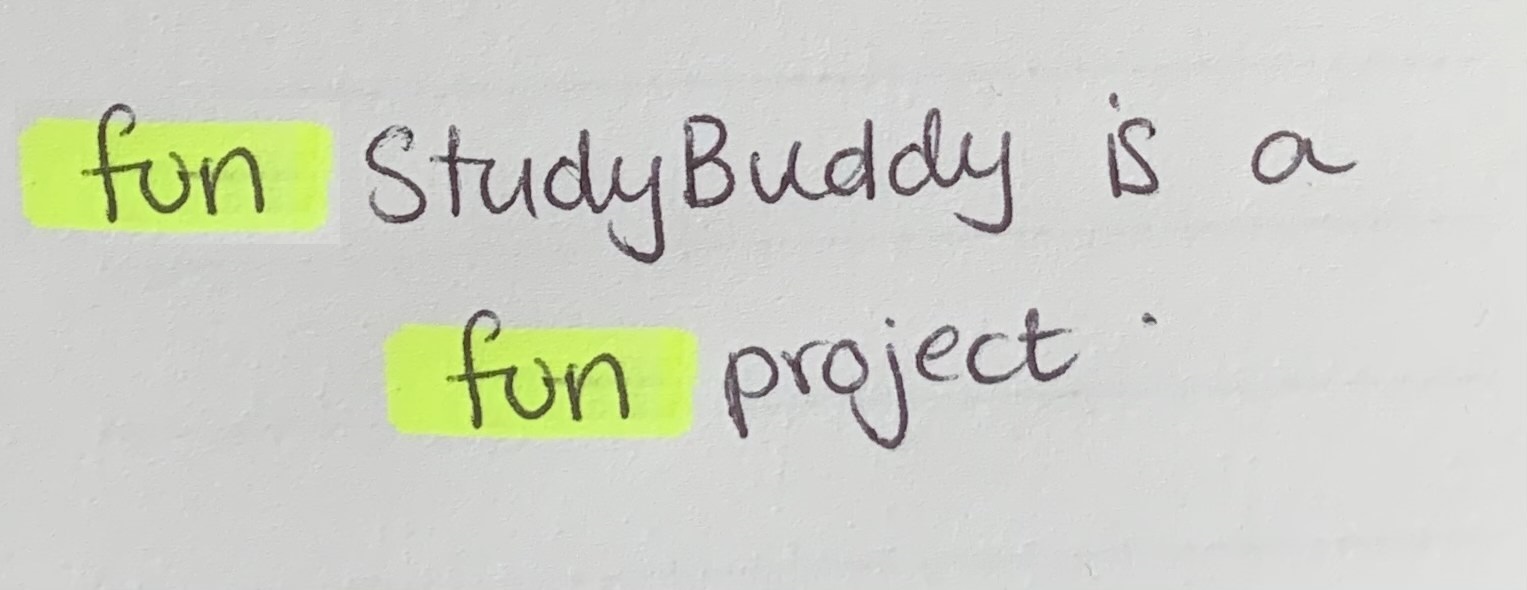 fun StudyBuddy is a
fun project.